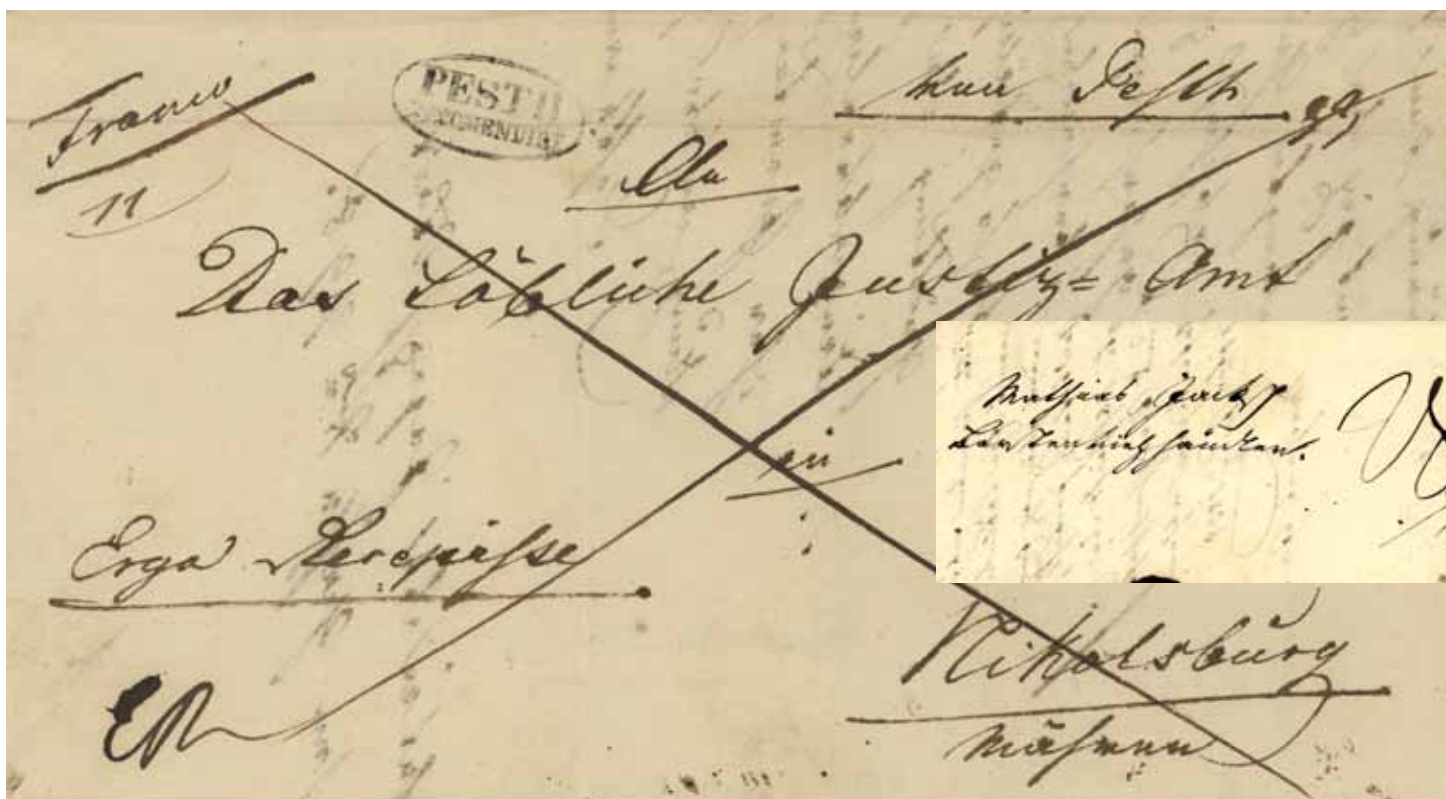 Franco
11
PESTH
RECOMENDIRT
von Pesth
An
Das Löbliche Justiz= Amt
in
Mathias
Borstenviehhändler.
Erga Recepisse
Nikolsburg
Mähren